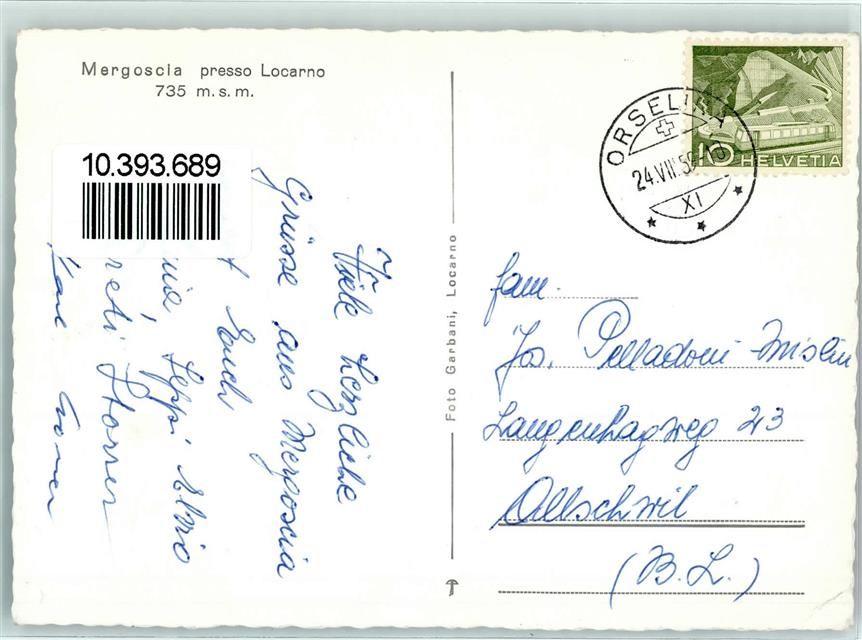 Mergoscia presso Locarno
735 m.s.m.
10.393.689
Viele herzliche
Grüsse aus Mergoscia
Euch
Seppi Elvio
Foto Garbani, Locarno
ORSELINA
24.VII.5
XI
10 HELVETIA
Fam.
Jos. Pelladoni-Mislin
Langenhagweg 23
Allschwil
(B.L.)